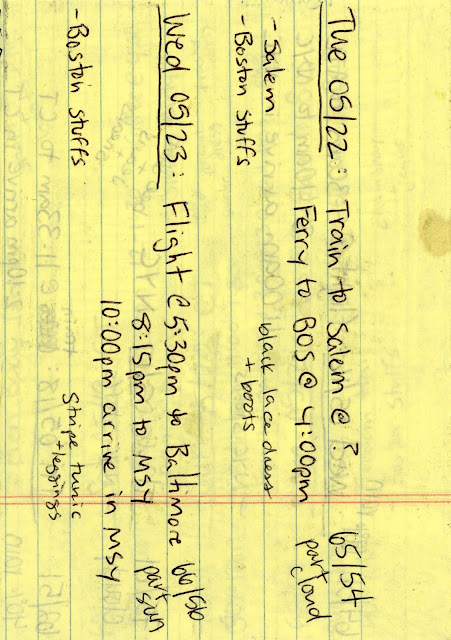 The 05/22: Train to Salem @ ? 65/54
Ferry to BOS @ 4:00pm part cloud
- Salem
- Boston stuffs
black lace dress
+ boots
Wed 05/23: Flight @ 5:30pm to Baltimore 66/56
8:15pm to MSY part sun
10:00pm arrive in MSY
- Boston stuffs
Stripe tunic
+ leggings